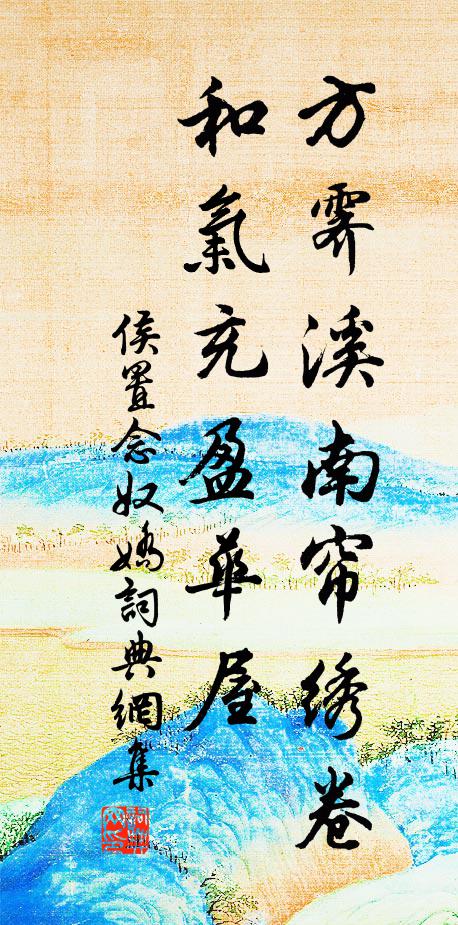 方霁溪南帘绣卷
和氣充盈華屋
侯置念奴嬌詞典網集